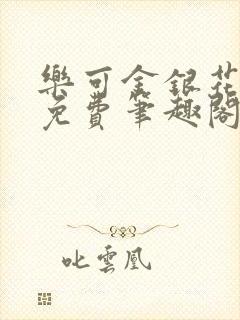 樂可金銀花
免費筆趣閣
叱雲凰